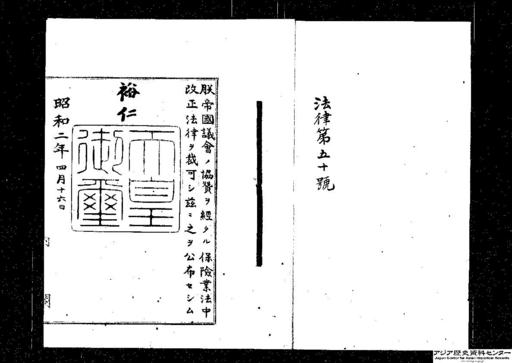 法律第五十號
朕帝國議會ノ協賛ヲ經タル保險業法中
改正法律ヲ裁可シ茲ニ之ヲ公布セシム
裕仁
天皇
御璽
昭和二年四月十六日
内閣
アジア歴史資料センター
Japan Center for Asian Historical Records